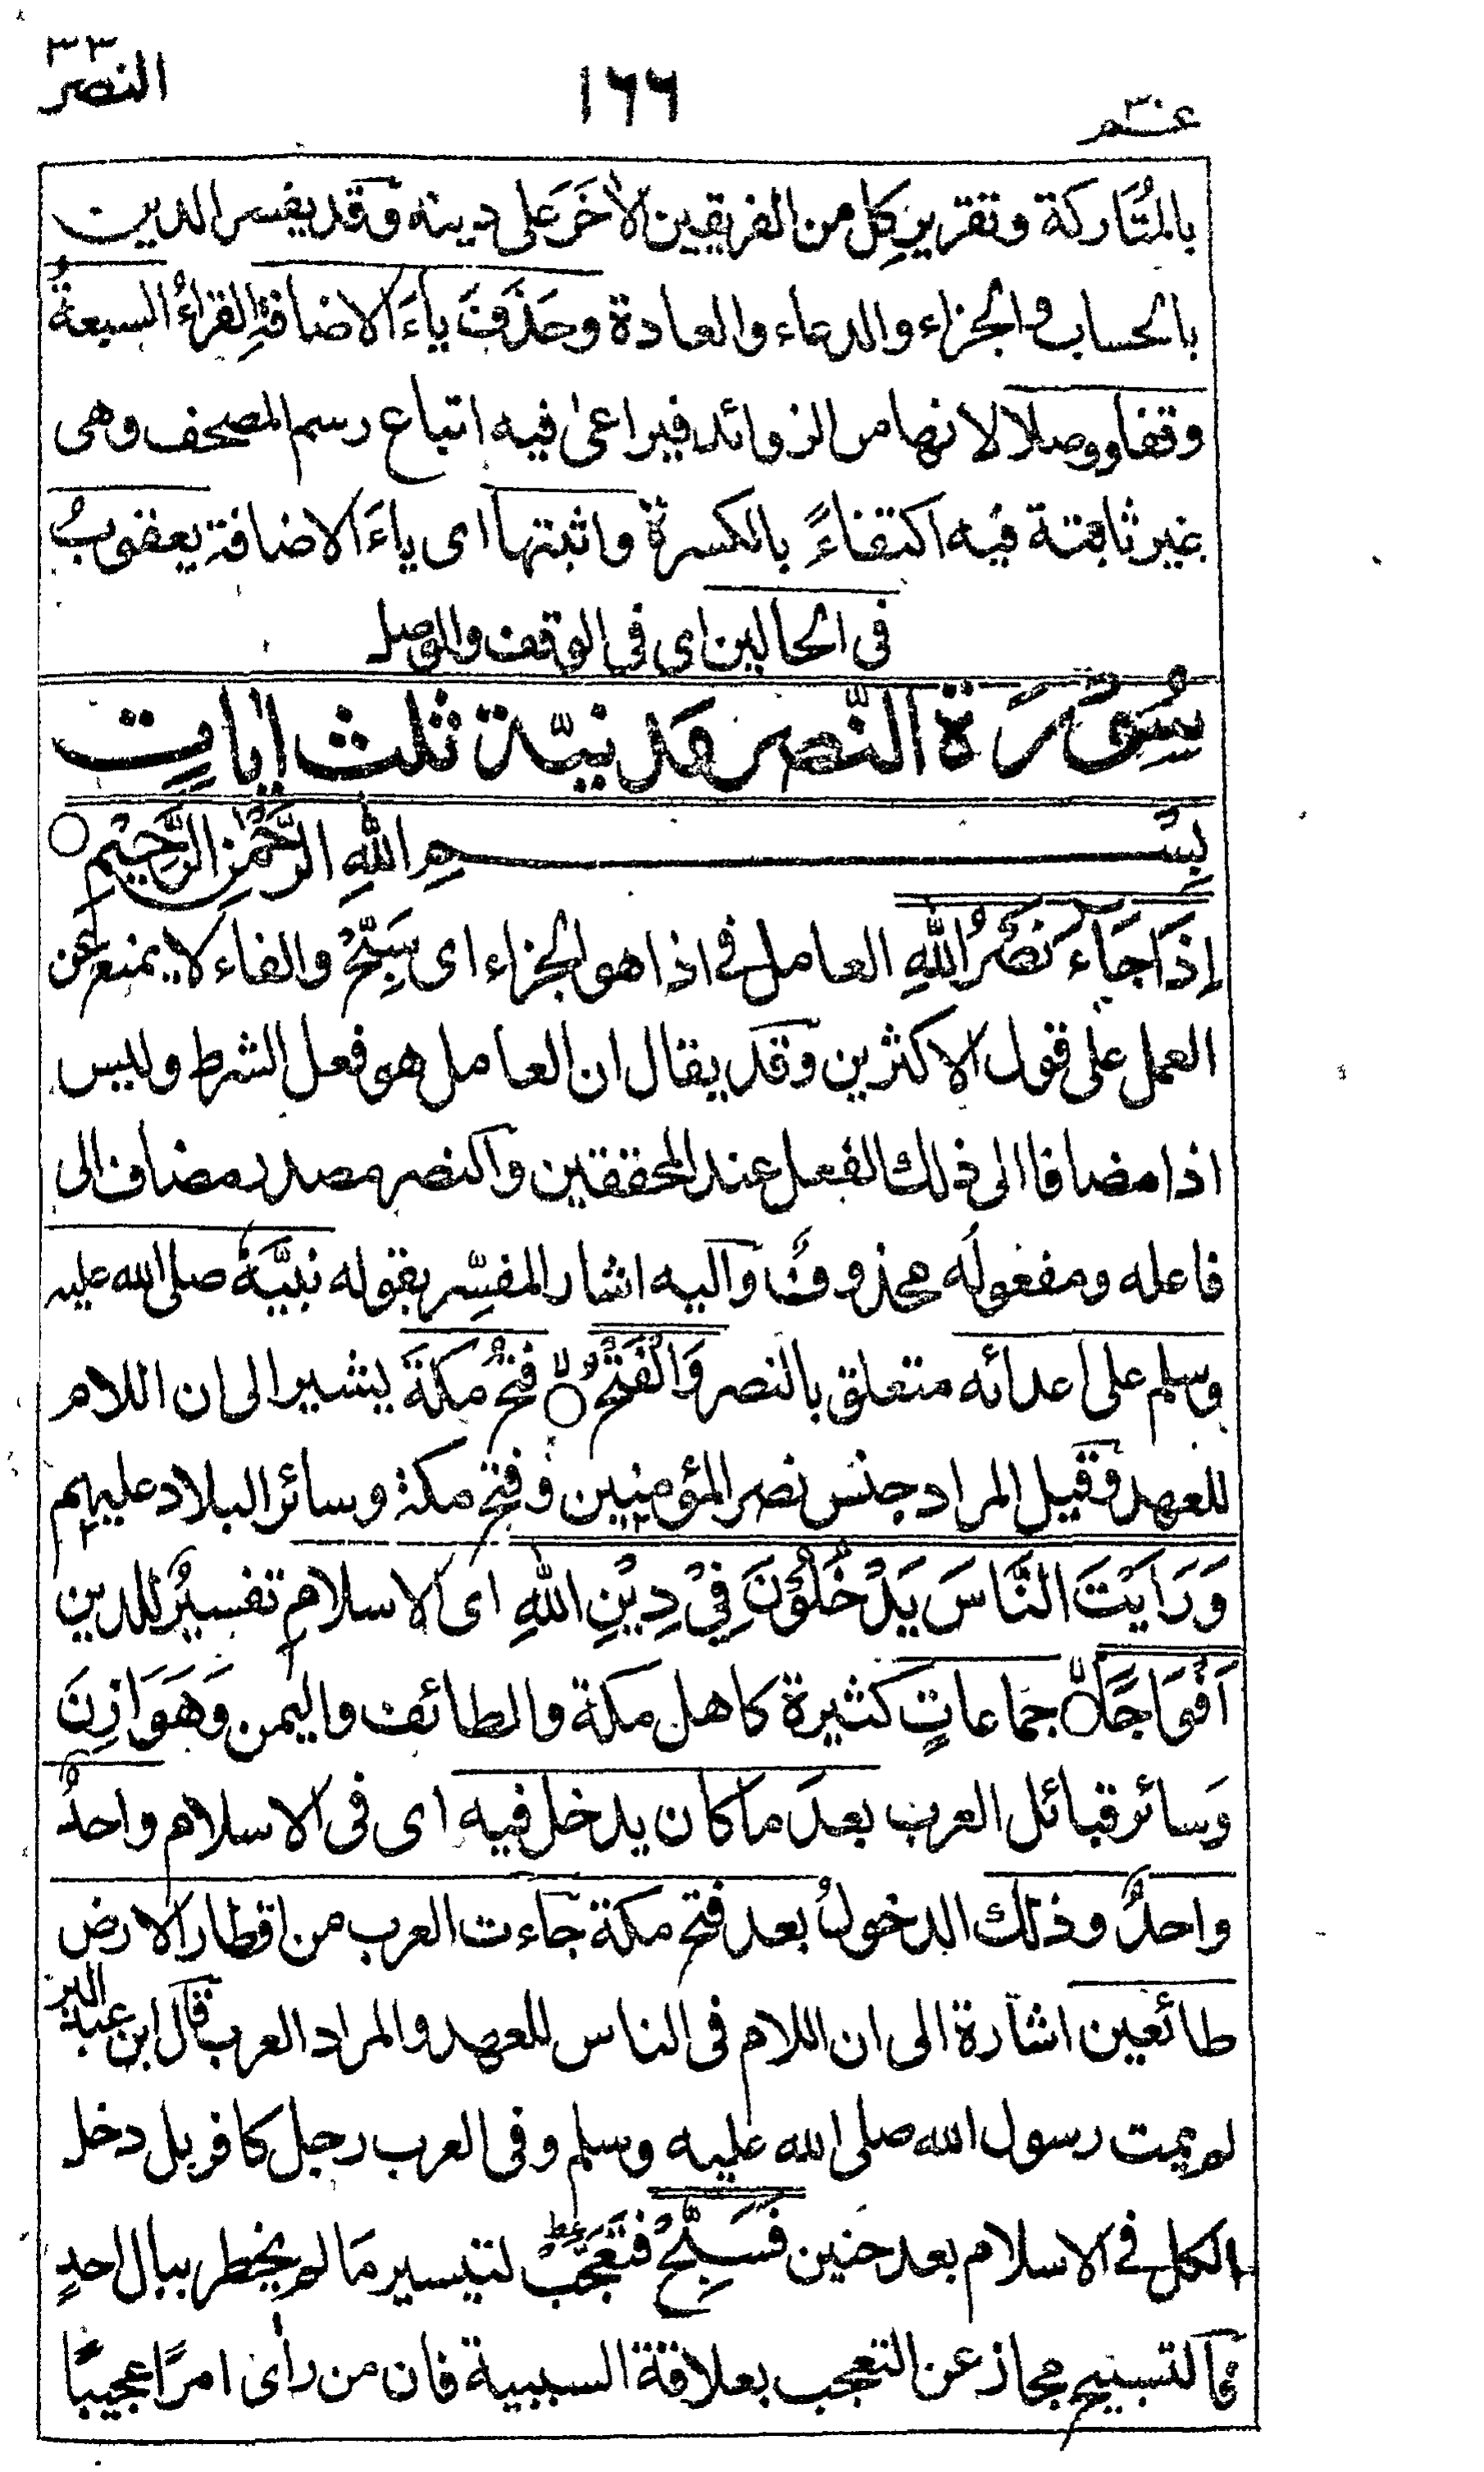 النصر ٣٣
١٦٦
عم ٣٠
بالمُتَاركة وتقريرِ كلٍ من الفريقين الاٰخَرَ على دينه وقد يفسر الدين
بالحساب والجزاء والدعاء والعادة وحَذَفَ ياءَ الاضافةِ القراءُ السبعةُ
وقفا ووصلا لانها من الزوائد فيراعىٰ فيه اتباع رسم المصحف وهى
غير ثابتة فيه اكتفاءً بالكسرة واثبتها اى ياءَ الاضافة يعقوبُ
فى الحالين اى فى الوقف والوصل
سُوْرَة النَّصر مدنيّة ثلٰث اٰيات
بِسْمِ اللّٰهِ الرَّحْمٰنِ الرَّحِيْمِ ○
إِذَا جَآءَ نَصْرُ اللّٰهِ العامل فى اذا هو الجزاء اى سَبِّحْ والفاء لا يمنع عن
العمل على قول الاكثرين وقد يقال ان العامل هو فعل الشرط وليس
اذا مضافا الى ذلك الفعل عند المحققين والنصر مصدر مضاف الى
فاعله ومفعولُه محذوفٌ واليه اشار المفسِّر بقوله نبيَّهٗ صلى الله عليه
وسلم على اعدائه متعلق بالنصر وَالْفَتْحُ ○ فتحُ مكةَ يشير الى ان اللام
للعهد وقيل المراد جنس نصر المؤمنين وفتح مكة وسائر البلاد عليهم
وَرَاَيْتَ النَّاسَ يَدْخُلُوْنَ فِيْ دِيْنِ اللّٰهِ اى الاسلامِ تفسيرٌ للدين
اَفْوَاجًا ○ جماعاتٍ كثيرة كاهل مكة والطائف واليمن وَهَوَازِنَ
وَسائر قبائل العرب بعدَ ما كان يدخل فيه اى فى الاسلام واحدٌ
واحدٌ وذلك الدخولُ بعد فتح مكة جاءت العرب من اقطار الارض
طائعين اشارة الى ان اللام فى الناس للعهد والمراد العرب قال ابن عبد البر
لم يمت رسول الله صلى الله عليه وسلم وفى العرب رجل كافر بل دخل
الكل فى الاسلام بعد حنين فَسَبِّحْ فتَعَجَّبْ لتيسير مَا لم يخطر ببال احدٍ
فالتسبيح مجاز عن التعجب بعلاقة السببية فان من رأى امرًا عجيبًا